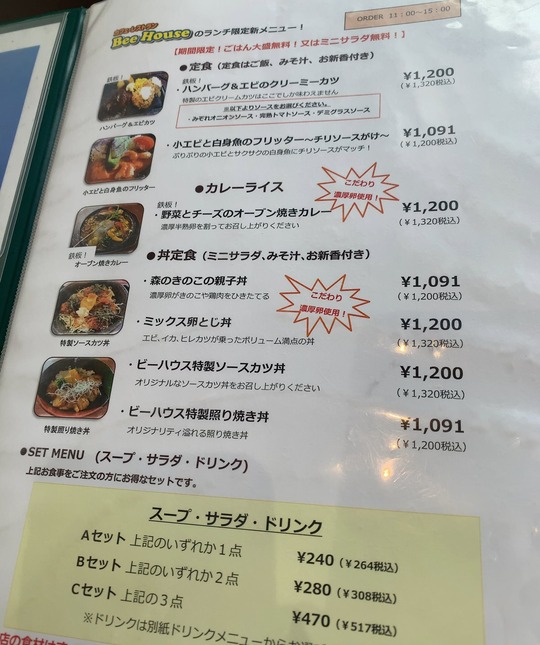 カフェレストラン
Bee House のランチ限定新メニュー！
ORDER 11：00～15：00
【期間限定！ごはん大盛無料！又はミニサラダ無料！】
●定食（定食はご飯、みそ汁、お新香付き）
鉄板！
鉄板！
・ハンバーグ＆エビのクリーミーカツ
¥1,200
特製のエビクリームカツはここでしか味わえません
（￥1,320税込）
※以下よりソースをお選びください。
・みぞれオニオンソース・完熟トマトソース・デミグラスソース
ハンバーグ＆エビカツ
・小エビと白身魚のフリッター～チリソースがけ～
¥1,091
ぷりぷりの小エビとサクサクの白身魚にチリソースがマッチ！
（￥1,200税込）
小エビと白身魚のフリッター
●カレーライス
こだわり
濃厚卵使用！
鉄板！
・野菜とチーズのオーブン焼きカレー
¥1,200
濃厚半熟卵を割ってお召し上がりください
（￥1,320税込）
鉄板！
オーブン焼きカレー
●丼定食（ミニサラダ、みそ汁、お新香付き）
・森のきのこの親子丼
¥1,091
濃厚卵がきのこや鶏肉をひきたてる
（￥1,200税込）
こだわり
濃厚卵使用！
・ミックス卵とじ丼
¥1,200
エビ、イカ、ヒレカツが乗ったボリューム満点の丼
（￥1,320税込）
特製ソースカツ丼
・ビーハウス特製ソースカツ丼
¥1,200
オリジナルなソースカツ丼をお召し上がりください
（￥1,320税込）
・ビーハウス特製照り焼き丼
¥1,091
オリジナリティ溢れる照り焼き丼
（￥1,200税込）
特製照り焼き丼
●SET MENU （スープ・サラダ・ドリンク）
上記お食事をご注文の方にお得なセットです。
スープ・サラダ・ドリンク
Aセット 上記のいずれか１点
¥240（￥264税込）
Bセット 上記のいずれか２点
¥280（￥308税込）
Cセット 上記の３点
¥470（￥517税込）
※ドリンクは別紙ドリンクメニューからお選
店の食材は